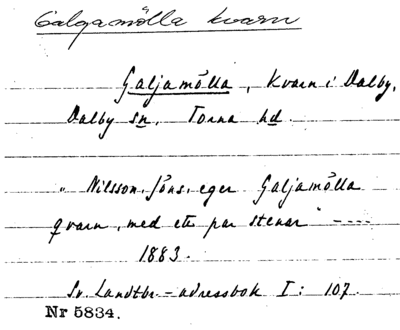 Galgamölla kvarn
Galjamölla, kvarn i Dalby,
Dalby sn, Torna hd.
"Nilsson, Jöns, eger Galjamölla
qvarn, med ett par stenar" -----
1883.
Sv. Landtbr.-adressbok I: 107.
Nr 5834.